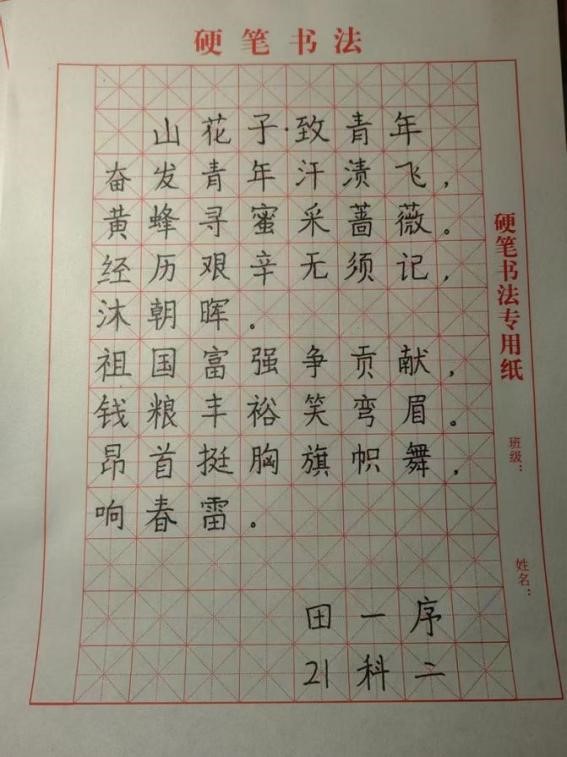 硬笔书法
山花子·致青年
奋发青年汗渍飞，
黄蜂寻蜜采蔷薇。
经历艰辛无须记，
沐朝晖。
祖国富强争贡献，
钱粮丰裕笑弯眉。
昂首挺胸旗帜舞，
响春雷。
田一序
21科二
硬笔书法专用纸
班级：
姓名：